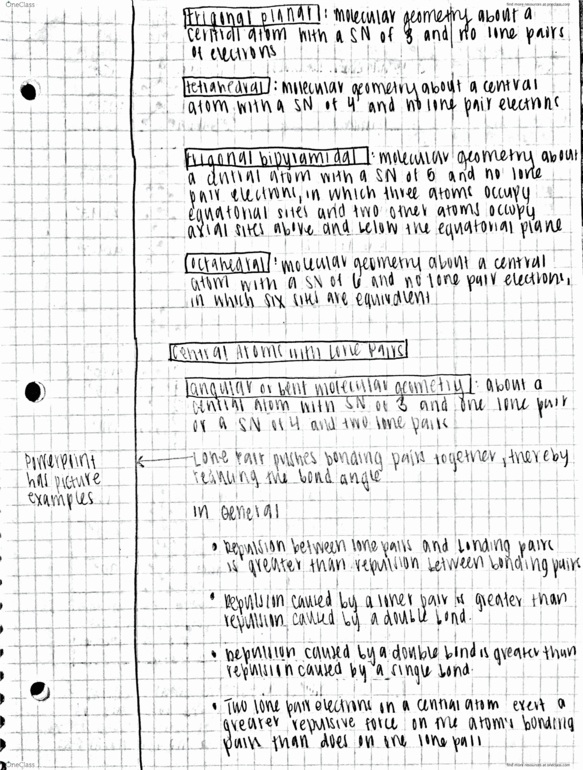 OneClass
find more resources at oneclass.com
trigonal planar: molecular geometry about a
central atom with a SN of 3 and no lone pairs
of electrons
tetrahedral: molecular geometry about a central
atom with a SN of 4 and no lone pair electrons
trigonal bipyramidal: molecular geometry about
a central atom with a SN of 5 and no lone
pair electrons, in which three atoms occupy
equatorial sites and two other atoms occupy
axial sites above and below the equatorial plane
octahedral: molecular geometry about a central
atom with a SN of 6 and no lone pair electrons,
in which six sites are equivalent
Central Atoms with Lone Pairs
angular or bent molecular geometry: about a
central atom with SN of 3 and one lone pair
or a SN of 4 and two lone pairs
Powerpoint
has picture
examples
Lone Pair pushes bonding pairs together, thereby
reducing the bond angle
In General
• Repulsion between lone pairs and bonding pairs
is greater than repulsion between bonding pairs
• Repulsion caused by a loner pair is greater than
repulsion caused by a double bond.
• Repulsion caused by a double bond is greater than
repulsion caused by a single bond.
• Two lone pair electrons on a central atom exert a
greater repulsive force on the atom's bonding
pairs than does on one lone pair
OneClass
find more resources at oneclass.com